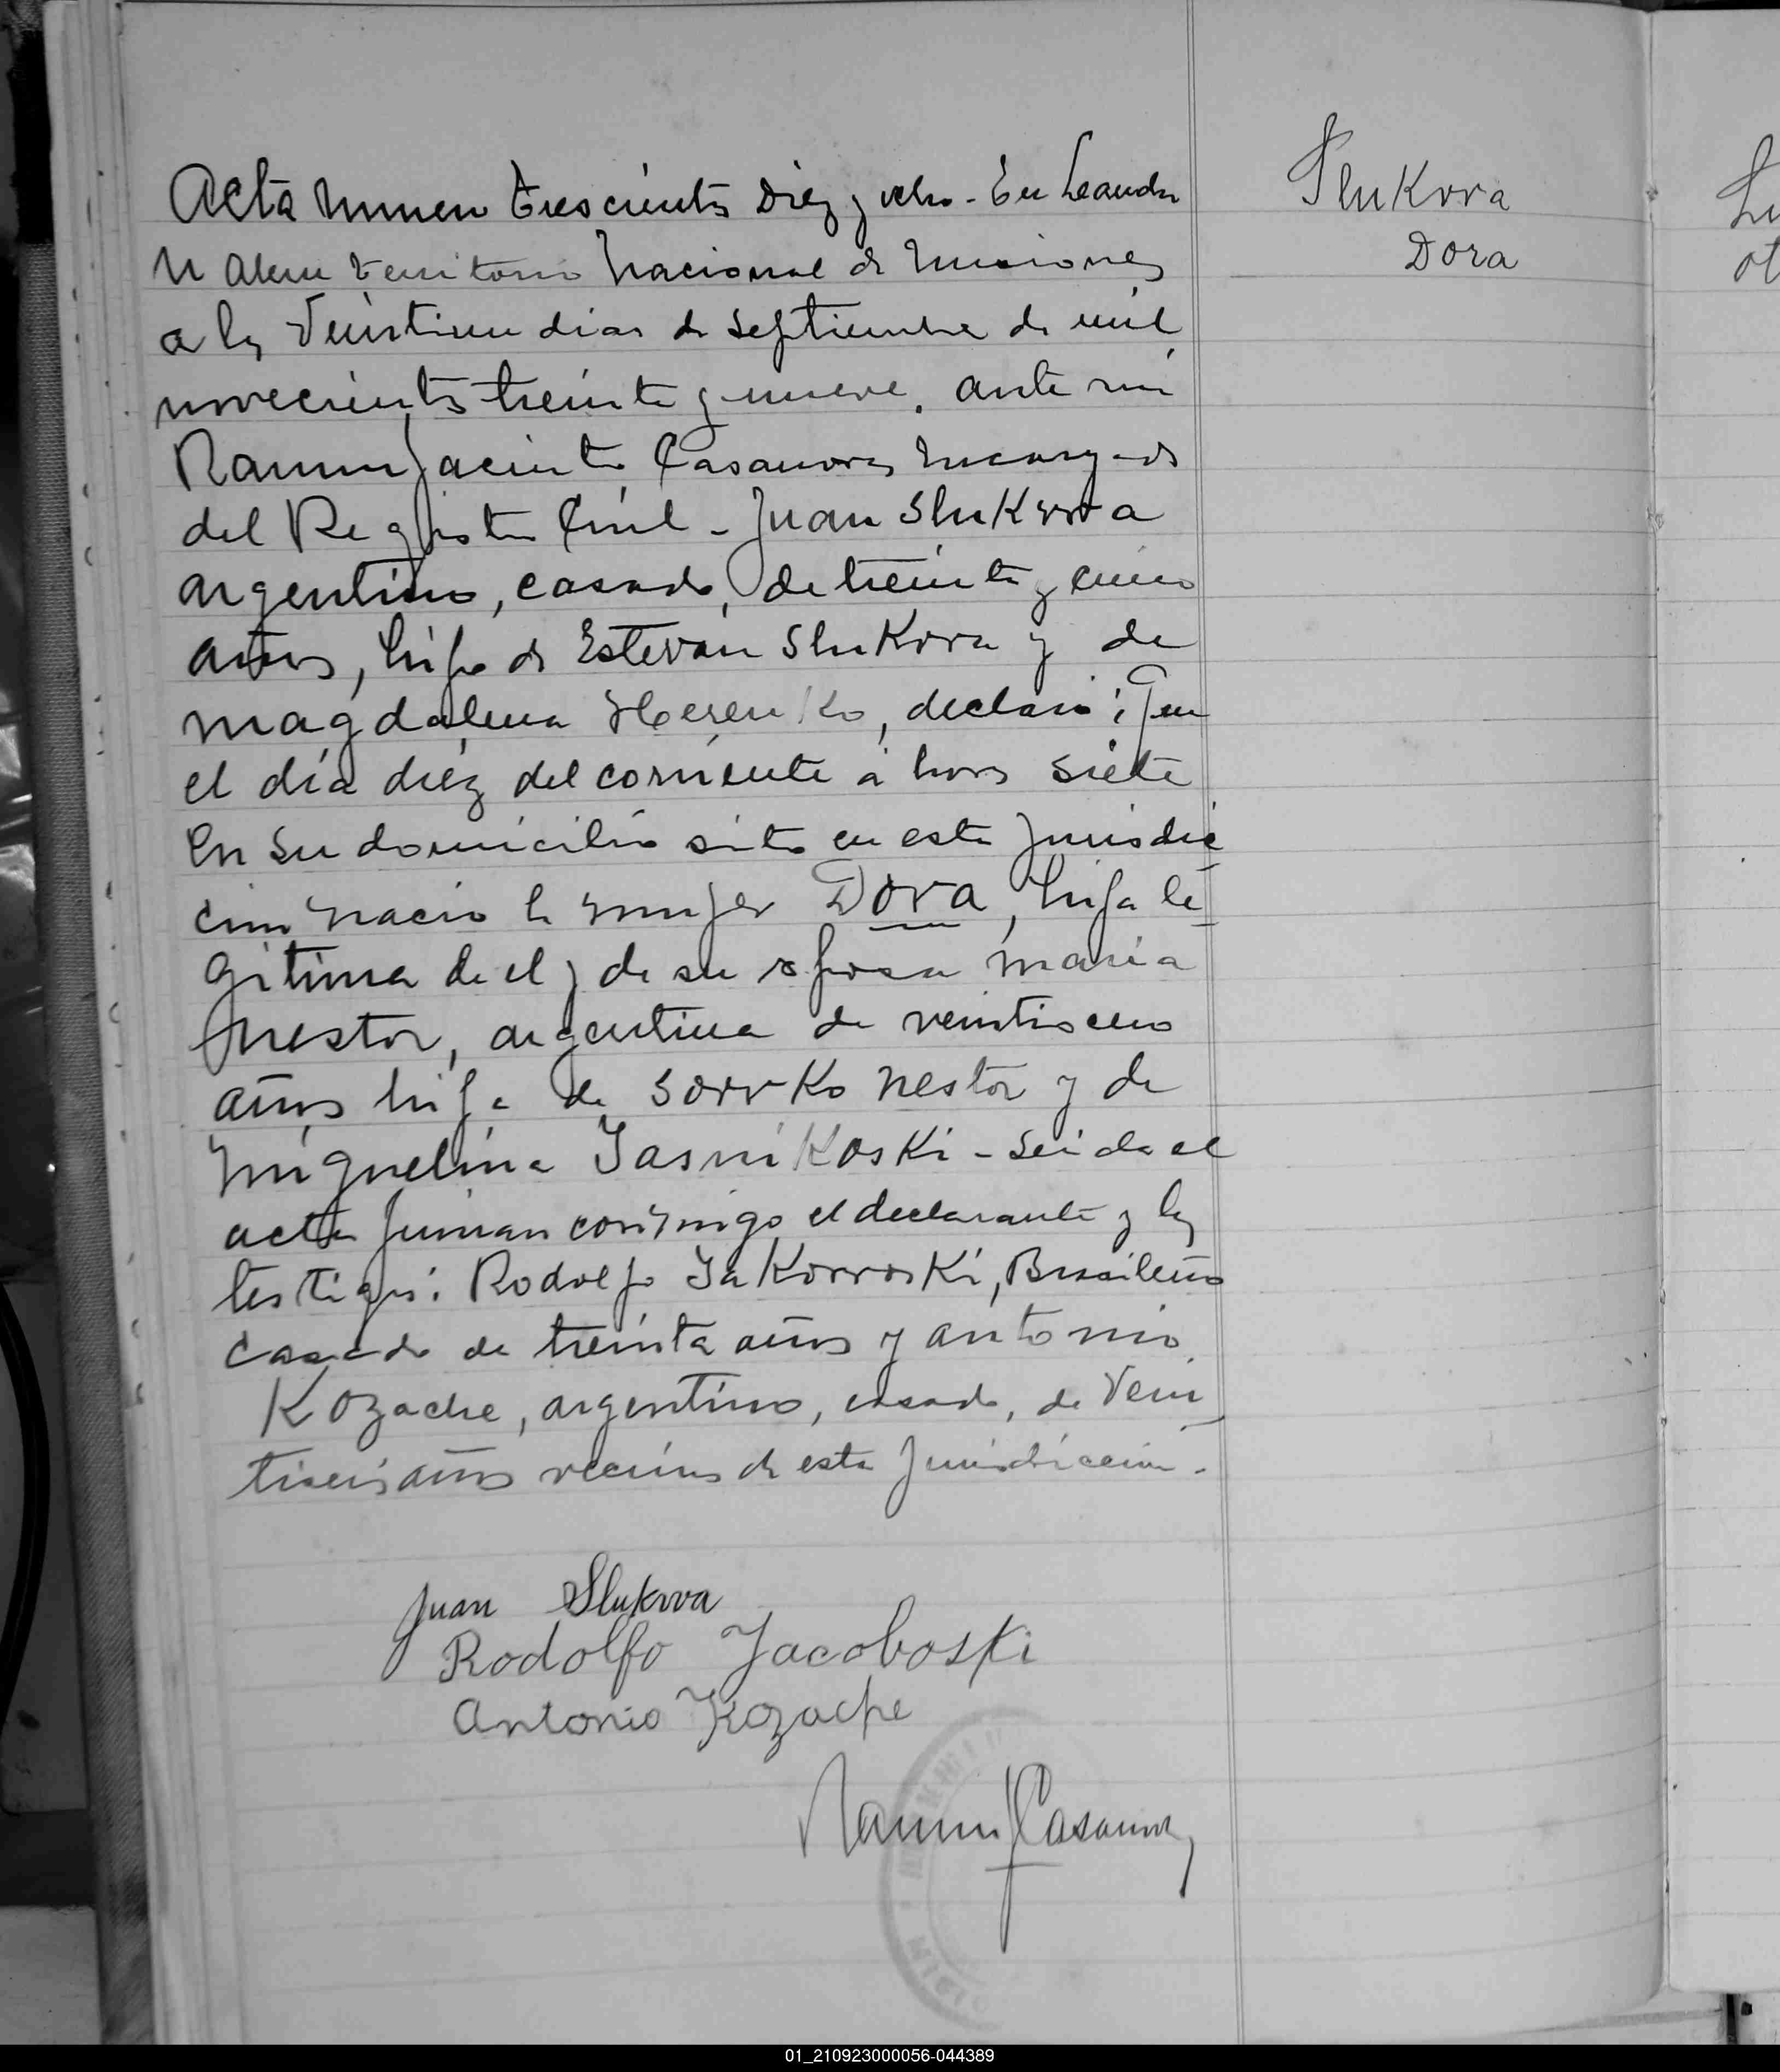 Acta Numero Trescientos Diez y ocho - En Leandro
N Alem Territorio Nacional de Misiones
a los Veintiun dias de Septiembre de mil
novecientos treinta y nueve, ante mi
Ramon Jacinto Casanova, Encargado
del Registro Civil - Juan Slukvva
argentino, casado, de treinta y cinco
años, hijo de Estevan Slukvva y de
Magdalena Herenko, declaró: Que
el día diez del corriente a horas siete
en su domicilio sito en esta Jurisdic
cion nacio la mujer Dora, hija le-
gitima de el y de su esposa Maria
Nestor, argentina de veinticinco
años hija de Sovvko Nestor y de
Miguelina Jasnikoski - Leida el
acta firman conmigo el declarante y los
testigos: Rodolfo Jakovvoski, Brasileño
casado de treinta años y Antonio
Kozache, argentino, casado, de Vein
tiseis años vecinos de esta Jurisdiccion.
Juan Slukvva
Rodolfo Jacoboski
Antonio Kozache
Ramon J Casanova
Slukvva
Dora
01_210923000056-044389